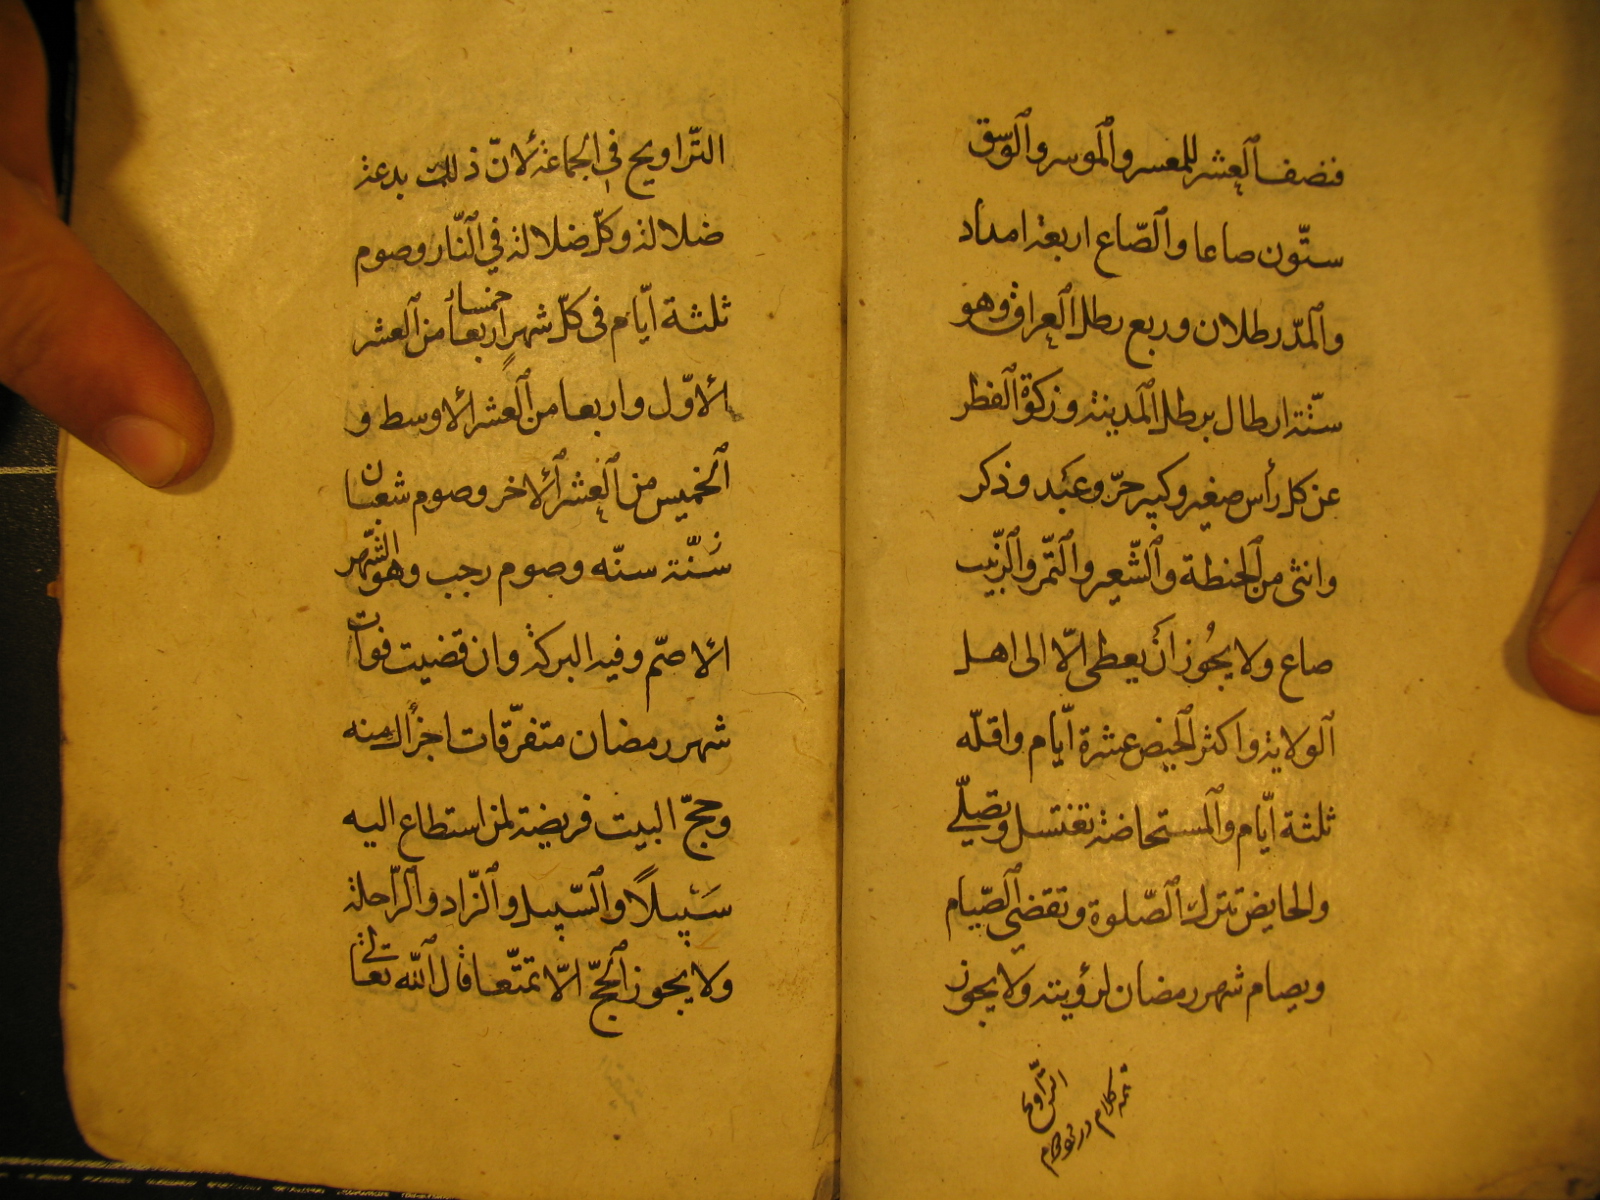 فنصف العشر للمعسر والموسر والوسق
ستّون صاعا والصّاع اربعة امداد
والمدّ رطلان وربع رطل العراقى وهو
ستّة ارطال برطل المدينة وزكوة الفطر
عن كل رأس صغير وكبير حرّ وعبد وذكر
وانثى من الحنطة والشّعير والتّمر والزّبيب
صاع ولا يجُوز اَنْ يعطى الّا الى اهل
الولاية واكثر الحيض عشرة ايّام واقلّه
ثلثة ايّام والمستحاضة تغتسل وتصلّي
والحايض تترك الصّلوة وتقضى الصّيام
ويصام شهر رمضان لرؤيته ولا يجوز
التّراويح
تتمه كلام در
التّراويح في الجماعة لأنّ ذلك بدعة
ضلالة وكلّ ضلالة في النّار وصوم
ثلثة ايّام في كلّ شهرٍ اربعا خمسا من العشر
الأوّل واربعا من العشر الأوسط و
الخميس من العشر الأخر وصوم شعبان
سُنّة سنّه وصوم رجب وهو الشّهر
الأصّم وفيه البركة وان قضيت فوات
شهر رمضان متفرّقات اجزأك منه
وحجّ البيت فريضة لمن استطاع اليه
سَبيلًا والسّبيل والزّاد والرّاحلة
ولا يجوز الحجّ الّا تمتّعا قال الله تعالى